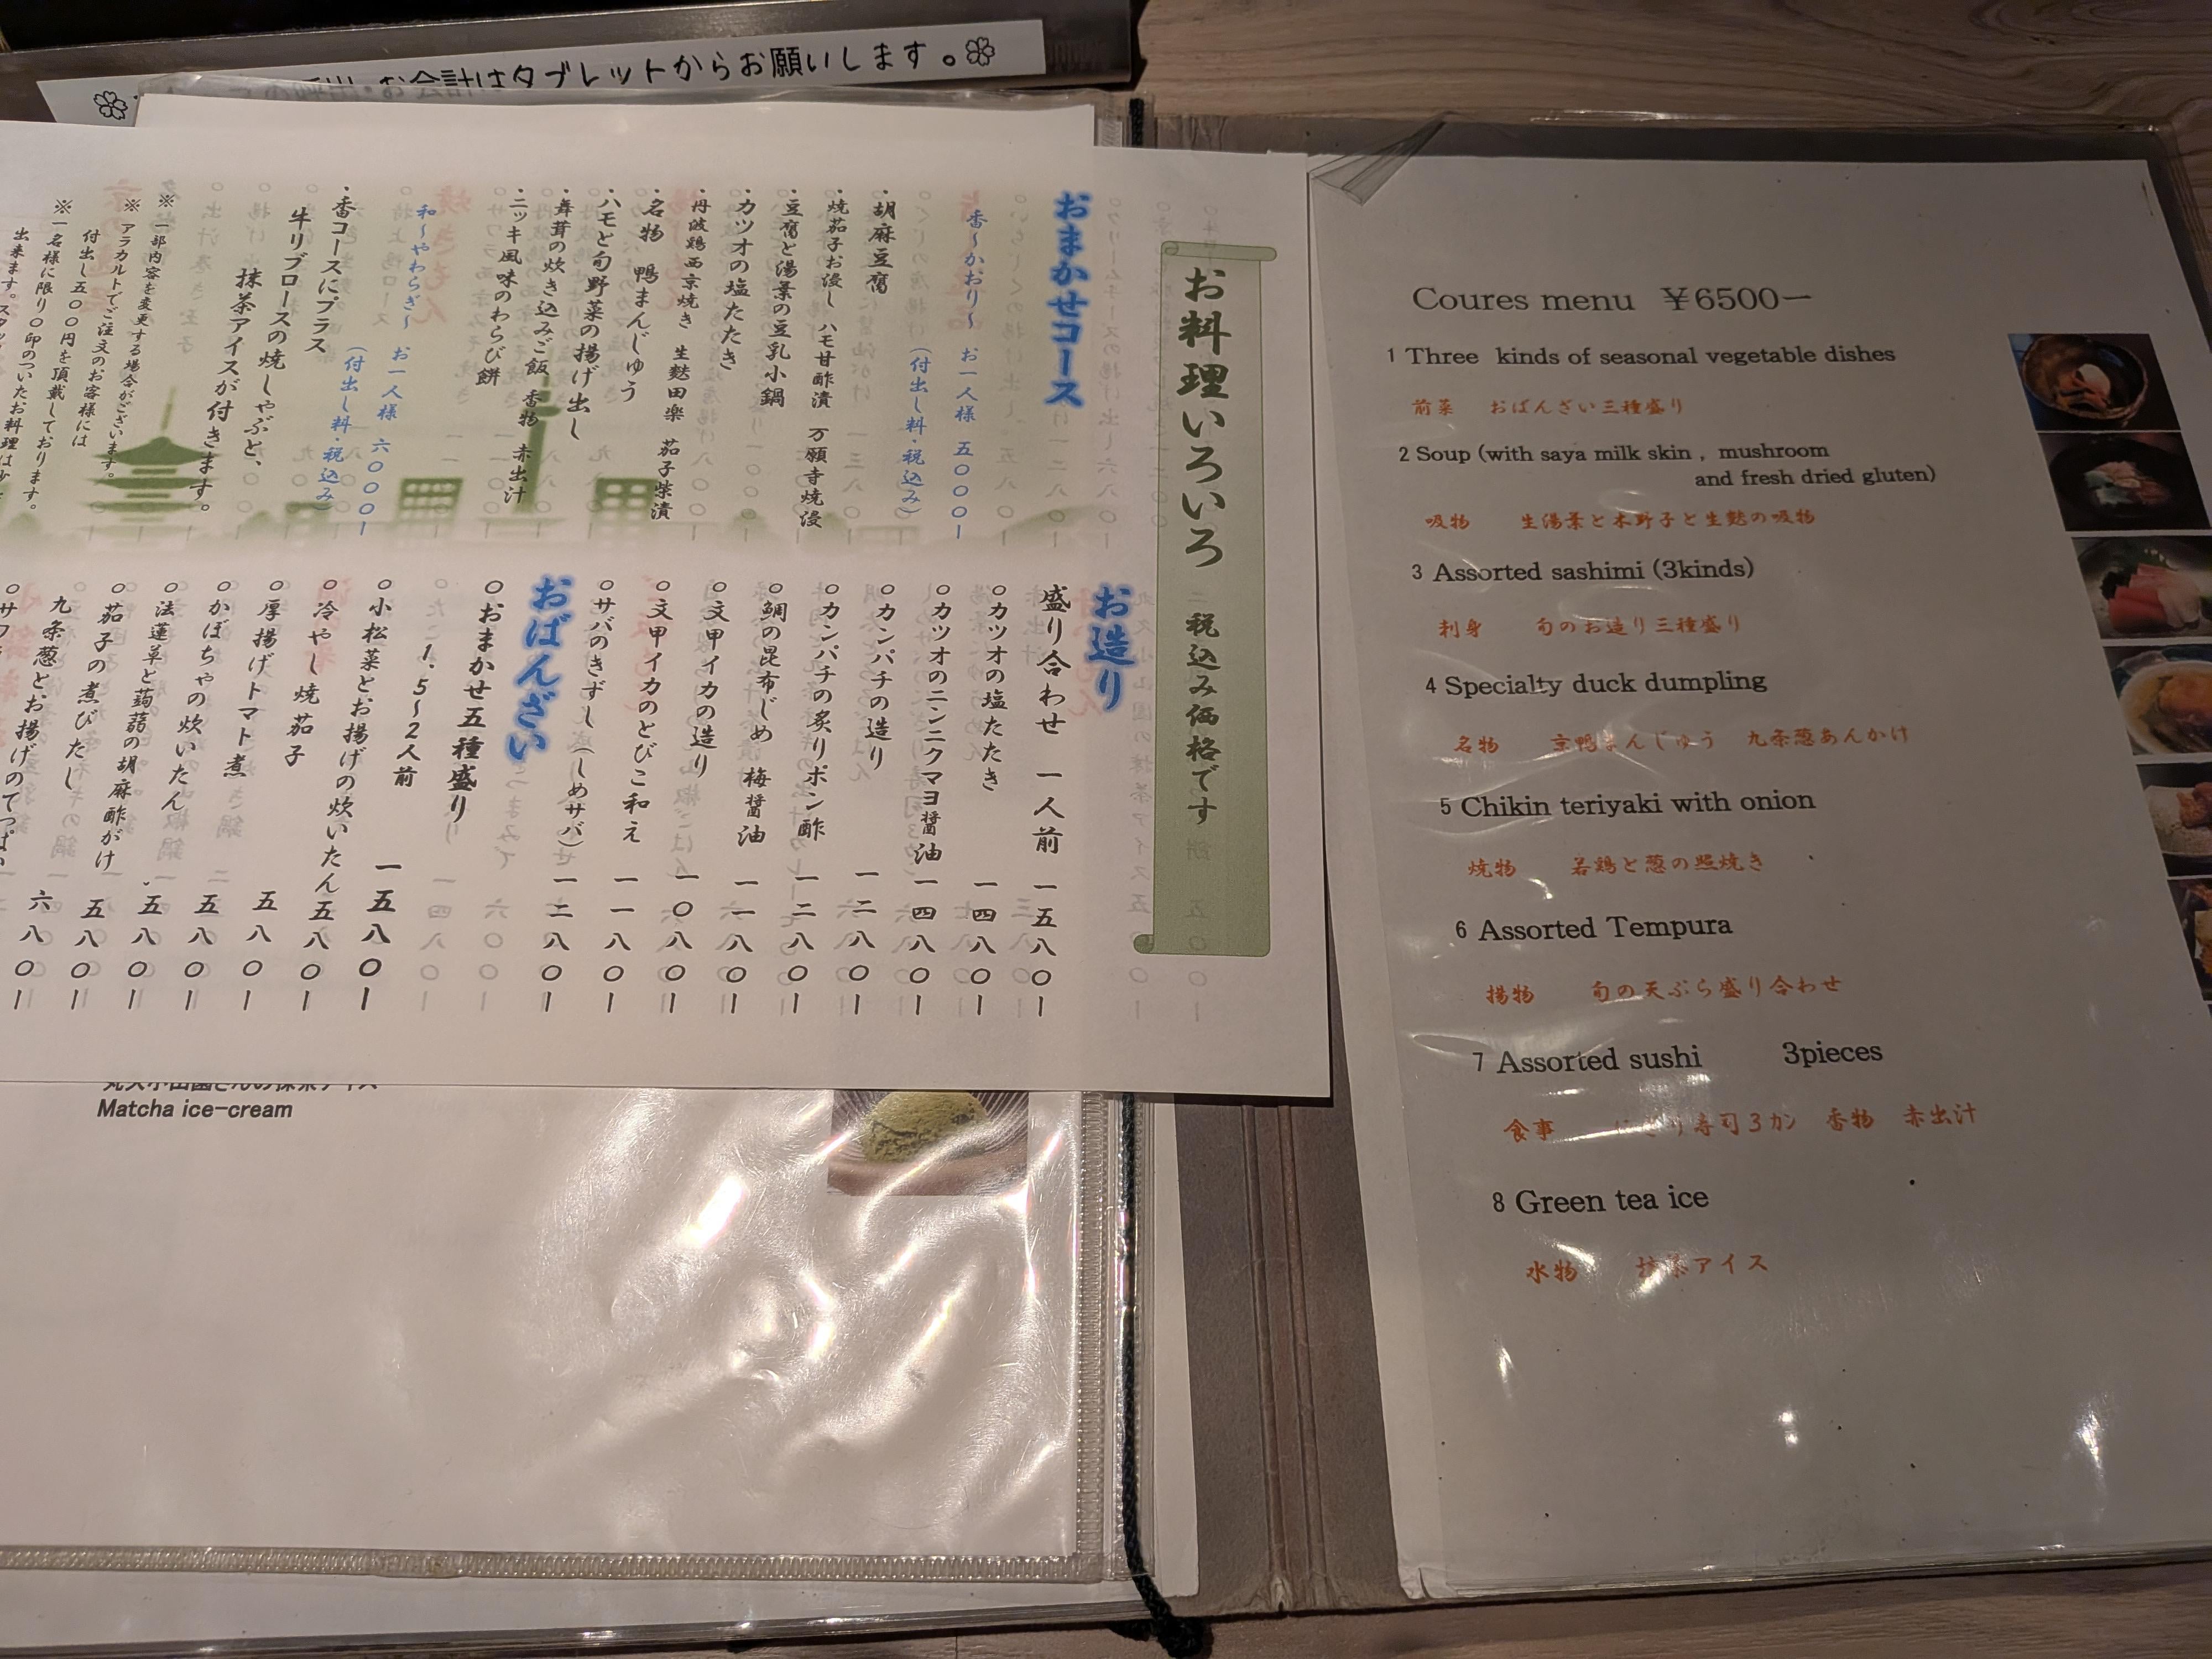 お会計はタブレットからお願いします。
お料理いろいろ 税込み価格です
おまかせコース
香〜かおり〜 お一人様 五〇〇〇ー
(付出し料・税込み)
・胡麻豆腐
・焼茄子お浸し ハモ甘酢漬 万願寺焼浸
・豆腐と湯葉の豆乳小鍋
・カツオの塩たたき
・丹波鶏西京焼き 生麩田楽 茄子柴漬
・名物 鴨まんじゅう
・ハモと旬野菜の揚げ出し
・舞茸の炊き込みご飯 香物 赤出汁
・ニッキ風味のわらび餅
和〜やわらぎ〜 お一人様 六〇〇〇ー
(付出し料・税込み)
・香コースにプラス
牛リブロースの焼しゃぶと、
抹茶アイスが付きます。
※一部内容を変更する場合がございます。
※アラカルトでご注文のお客様には
付出し五〇〇円を頂戴しております。
※一名様に限り〇印のついたお料理は
出来ます。
お造り
盛り合わせ 一人前 一五八〇ー
○カツオの塩たたき 一四八〇ー
○カツオのニンニクマヨ醤油 一四八〇ー
○カンパチの造り 一二八〇ー
○カンパチの炙りポン酢 一二八〇ー
○鯛の昆布じめ 梅醤油 一一八〇ー
○文甲イカの造り 一〇八〇ー
○文甲イカのとびこ和え 一一八〇ー
○サバのきずし(しめサバ) 一二八〇ー
おばんざい
○おまかせ五種盛り
1.5〜2人前 一五八〇ー
○小松菜とお揚げの炊いたん 五八〇ー
○冷やし焼茄子 五八〇ー
○厚揚げトマト煮 五八〇ー
○かぼちゃの炊いたん 五八〇ー
○法蓮草と蒟蒻の胡麻酢がけ 五八〇ー
○茄子の煮びたし 六八〇ー
九条葱とお揚げのてっぱい
Matcha ice-cream
Coures menu ¥6500ー
1 Three kinds of seasonal vegetable dishes
前菜 おばんざい三種盛り
2 Soup (with saya milk skin , mushroom
and fresh dried gluten)
吸物 生湯葉と木野子と生麩の吸物
3 Assorted sashimi (3kinds)
刺身 旬のお造り三種盛り
4 Specialty duck dumpling
名物 京鴨まんじゅう 九条葱あんかけ
5 Chikin teriyaki with onion
焼物 若鶏と葱の照焼き
6 Assorted Tempura
揚物 旬の天ぷら盛り合わせ
7 Assorted sushi 3pieces
食事 にぎり寿司3カン 香物 赤出汁
8 Green tea ice
水物 抹茶アイス